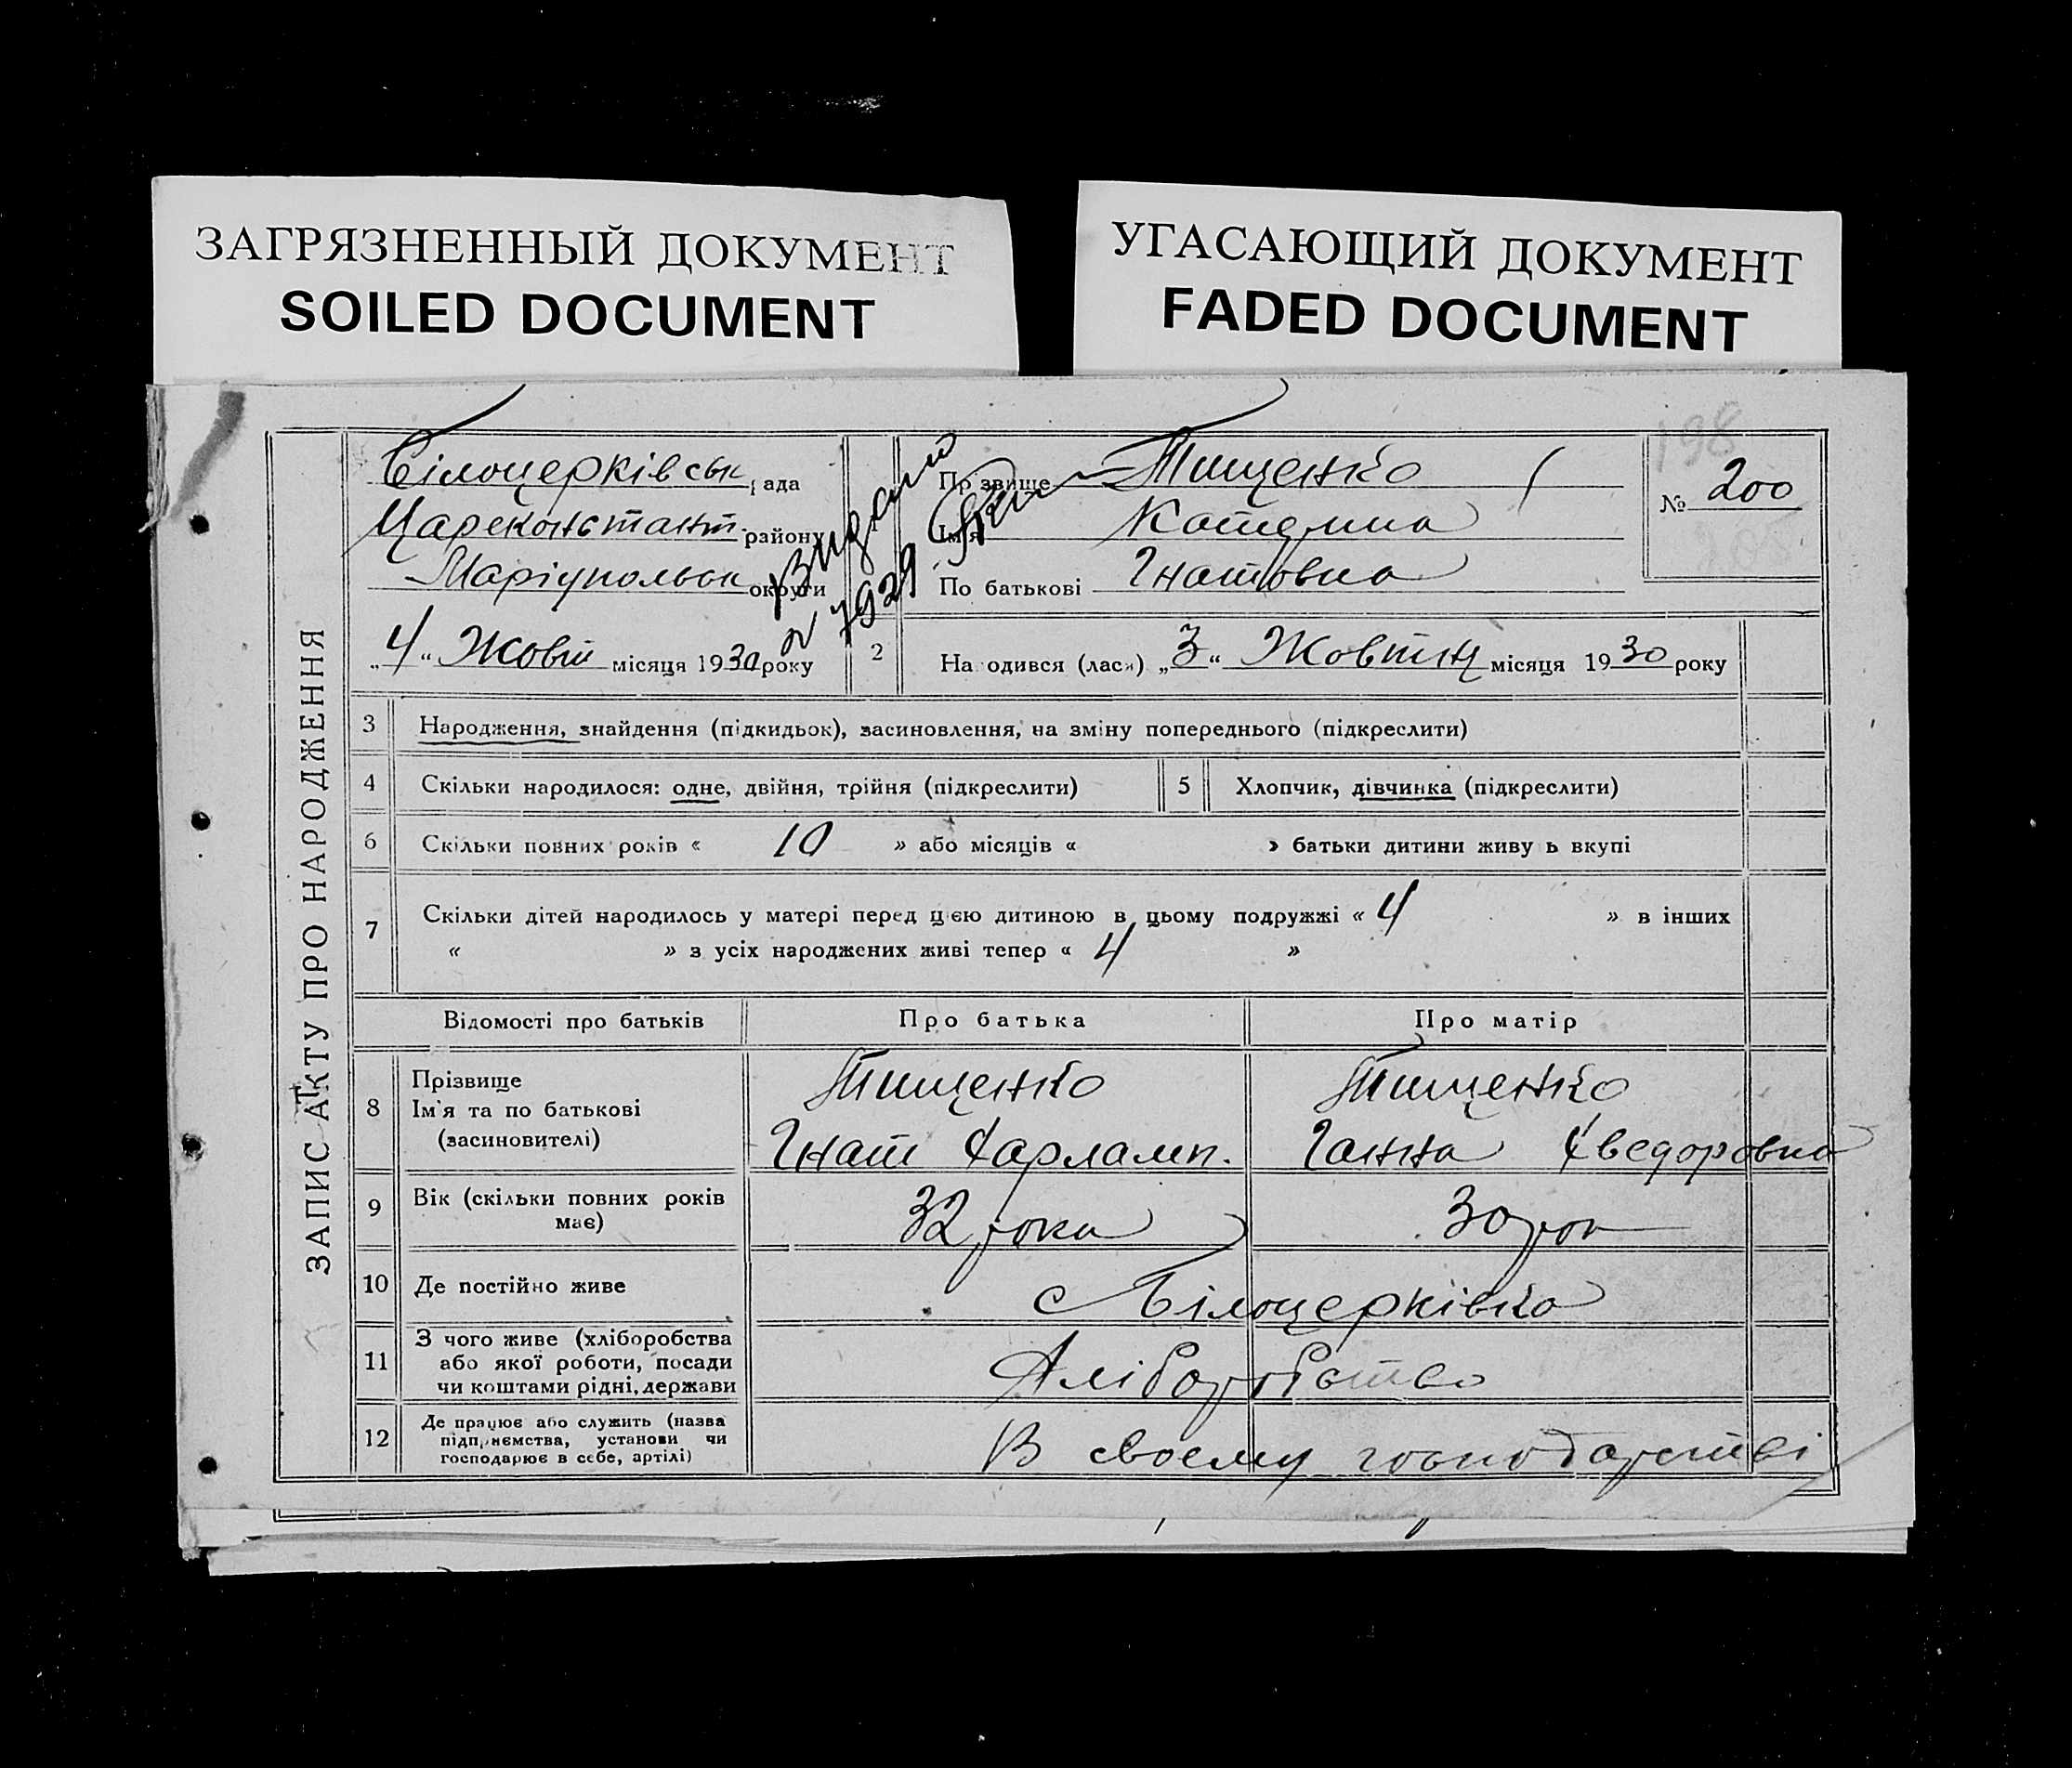 ЗАГРЯЗНЕННЫЙ ДОКУМЕНТ
SOILED DOCUMENT
УГАСАЮЩИЙ ДОКУМЕНТ
FADED DOCUMENT
ЗАПИС АКТУ ПРО НАРОДЖЕННЯ
198
Білоцерківськ рада
Цареконстант. району
Маріупольськ округи
„4“ Жовт місяця 1930 року
Видано
№ 7929
1
Прізвище Тищенко
Ім'я Катерина
По батькові Гнатовна
№ 200
2
На одився (лась) „3“ Жовтня місяця 1930 року
3 Народження, знайдення (підкидьок), засиновлення, на зміну попереднього (підкреслити)
4 Скільки народилося: одне, двійня, трійня (підкреслити)
5 Хлопчик, дівчинка (підкреслити)
6 Скільки повних років « 10 » або місяців « » батьки дитини живу ь вкупі
7 Скільки дітей народилось у матері перед цією дитиною в цьому подружжі « 4 » в інших
« » з усіх народжених живі тепер « 4 »
Відомості про батьків Про батька Про матір
8 Прізвище
Ім'я та по батькові
(засиновителі)
Тищенко
Гнат Харламп.
Тищенко
Ганна Хведоровна
9 Вік (скільки повних років
має)
32 роки
30 рок
10 Де постійно живе
с Білоцерківка
11 З чого живе (хліборобства
або якої роботи, посади
чи коштами рідні, держави
Хліборобство
12 Де працює або служить (назва
підприємства, установи чи
господарює в себе, артілі)
В своему господарстві